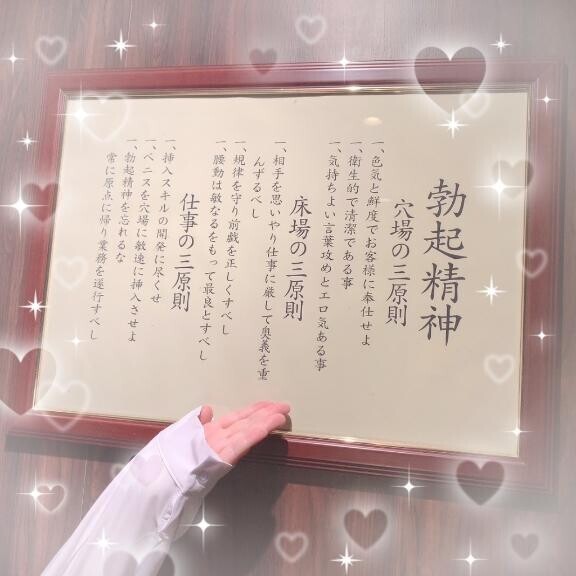 勃起精神
穴場の三原則
一、色気と鮮度でお客様に奉仕せよ
一、衛生的で清潔である事
一、気持ちよい言葉攻めとエロ気ある事
床場の三原則
一、相手を思いやり仕事に厳して奥義を重
んずるべし
一、規律を守り前戯を正しくすべし
一、腰動は敏なるをもって最良とすべし
仕事の三原則
一、挿入スキルの開発に尽くせ
一、ペニスを穴場に敏速に挿入させよ
一、勃起精神を忘れるな
常に原点に帰り業務を遂行すべし